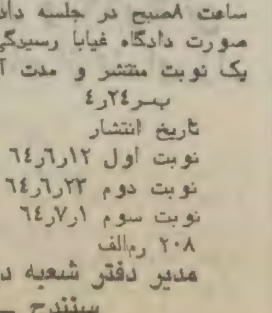 ساعت ۸صبح در جلسه داد
صورت دادگاه غیابا رسیدگی
یک نوبت منتشر و مدت آ
ب‍ـر۲۴ر۴
تاریخ انتشار
نوبت اول ۱۲ر۶ر۶۴
نوبت دوم ۲۳ر۶ر۶۴
نوبت سوم ۱ر۷ر۶۴
۲۰۸ رمالف
مدیر دفتر شعبه د
سنندج ــ